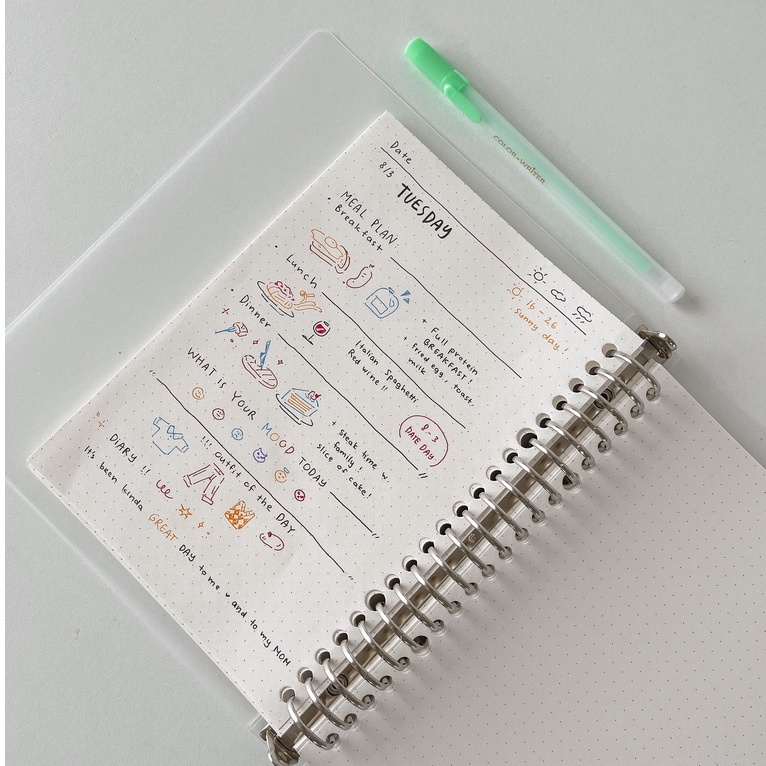 Date
8/3
TUESDAY
16 - 26
sunny day!
MEAL PLAN:
• Breakfast
+ Full protein
BREAKFAST!
+ fried egg, toast,
milk
• Lunch
Italian Spaghetti
Red wine !!
8 - 3
DATE DAY!
• Dinner
+ steak time w.
family,
slice of cake!
WHAT IS YOUR MOOD TODAY
!!! Outfit of the DAY
DIARY !!
It's been kinda GREAT DAY to me and to my MOM
COLOR-WRITER